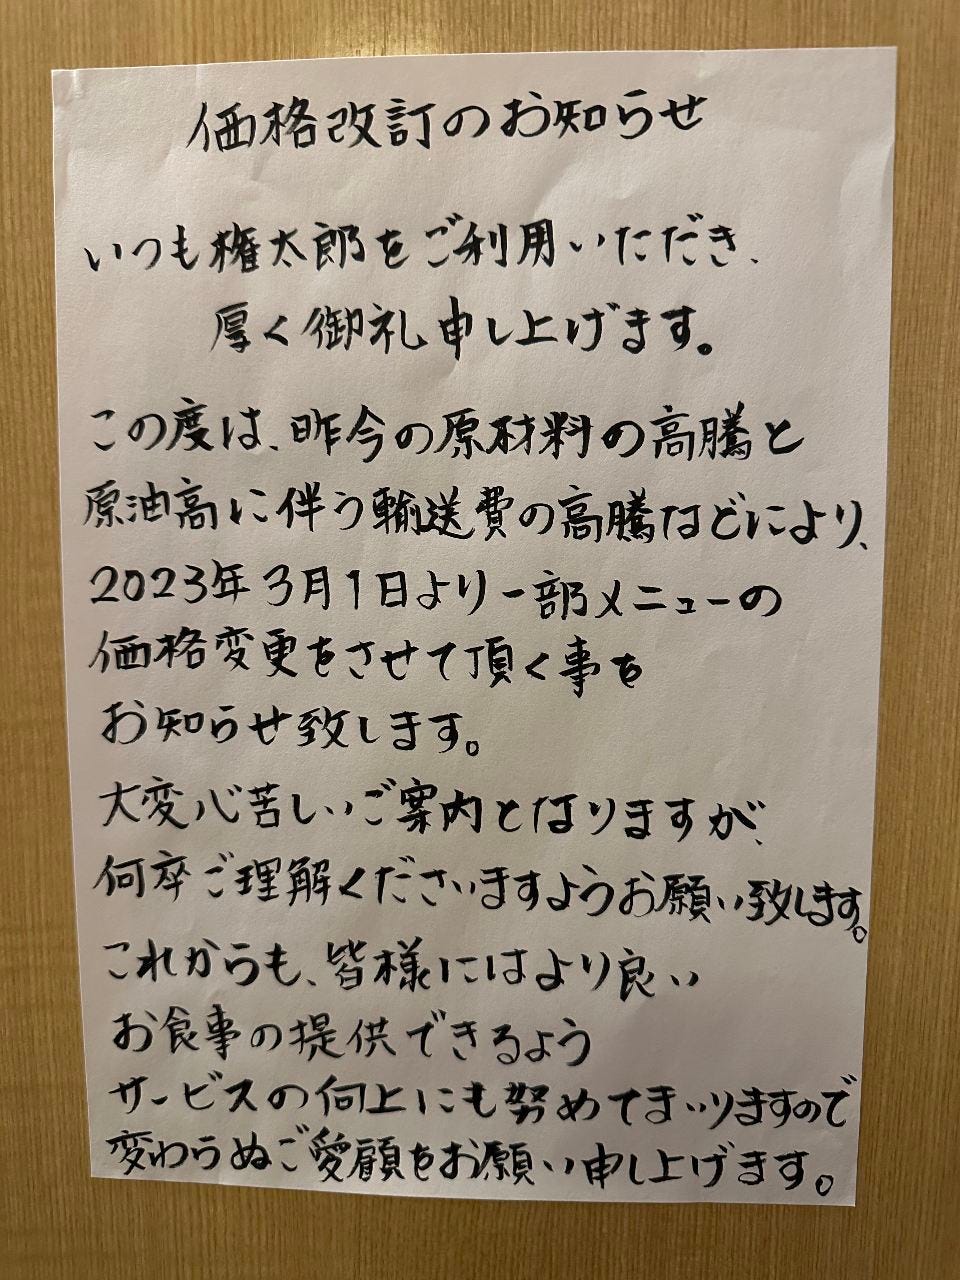 価格改訂のお知らせ
いつも権太郎をご利用いただき、
厚く御礼申し上げます。
この度は、昨今の原材料の高騰と
原油高に伴う輸送費の高騰などにより、
2023年3月1日より一部メニューの
価格変更をさせて頂く事を
お知らせ致します。
大変心苦しいご案内となりますが、
何卒ご理解くださいますようお願い致します。
これからも、皆様にはより良い
お食事の提供できるよう
サービスの向上にも努めてまいりますので
変わらぬご愛顧をお願い申し上げます。